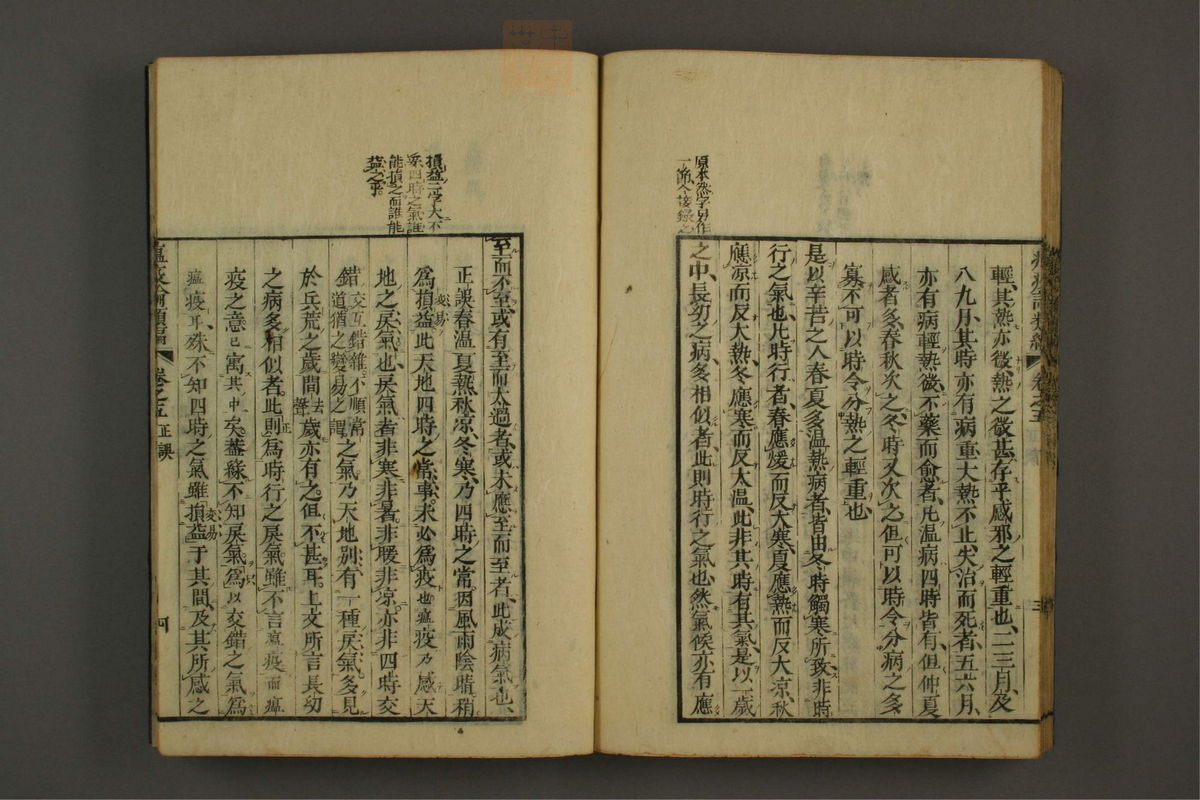 原本然字另作
一節今接錄之
輕其熱亦微熱之微甚存乎感邪之輕重也二三月及
八九月其時亦有病重大熱不止失治而死者五六月
亦有病輕熱微不藥而愈者凡温病四時皆有但仲夏
感者多春秋次之冬時又次之但可以時令分病之多
寡不可以時令分熱之輕重也
是以辛苦之人春夏多温熱病者皆由冬時觸寒所致非時
行之氣也凡時行者春應煖而反大寒夏應熱而反大凉秋
應凉而反大熱冬應寒而反太温此非其時有其氣是以一歲
之中長幼之病多相似者此則時行之氣也然氣候亦有應
卷之五
三
損益二字大不
妥四時之氣誰
能損之而誰能
益之乎
至而不至或有至而太過者或未應至而至者此成病氣也
正誤春温夏熱秋凉冬寒乃四時之常因風雨陰晴稍
為損益變易此天地四時之常事未必為疫也瘟疫乃感天
地之戾氣也戾氣者非寒非暑非暖非凉亦非四時交
錯交互錯雜不順常道猶之變易之謂之氣乃天地別有一種戾氣多見
於兵荒之歲間去聲歲亦有之但不甚耳上文所言長幼
之病多相似者此則正為時行之戾氣雖不言瘟疫而瘟
疫之意已寓其中矣葢緣不知戾氣為以交錯之氣為
瘟疫耳殊不知四時之氣雖損益變易于其間及其所感之
瘟疫論類編
卷之五 正誤
四